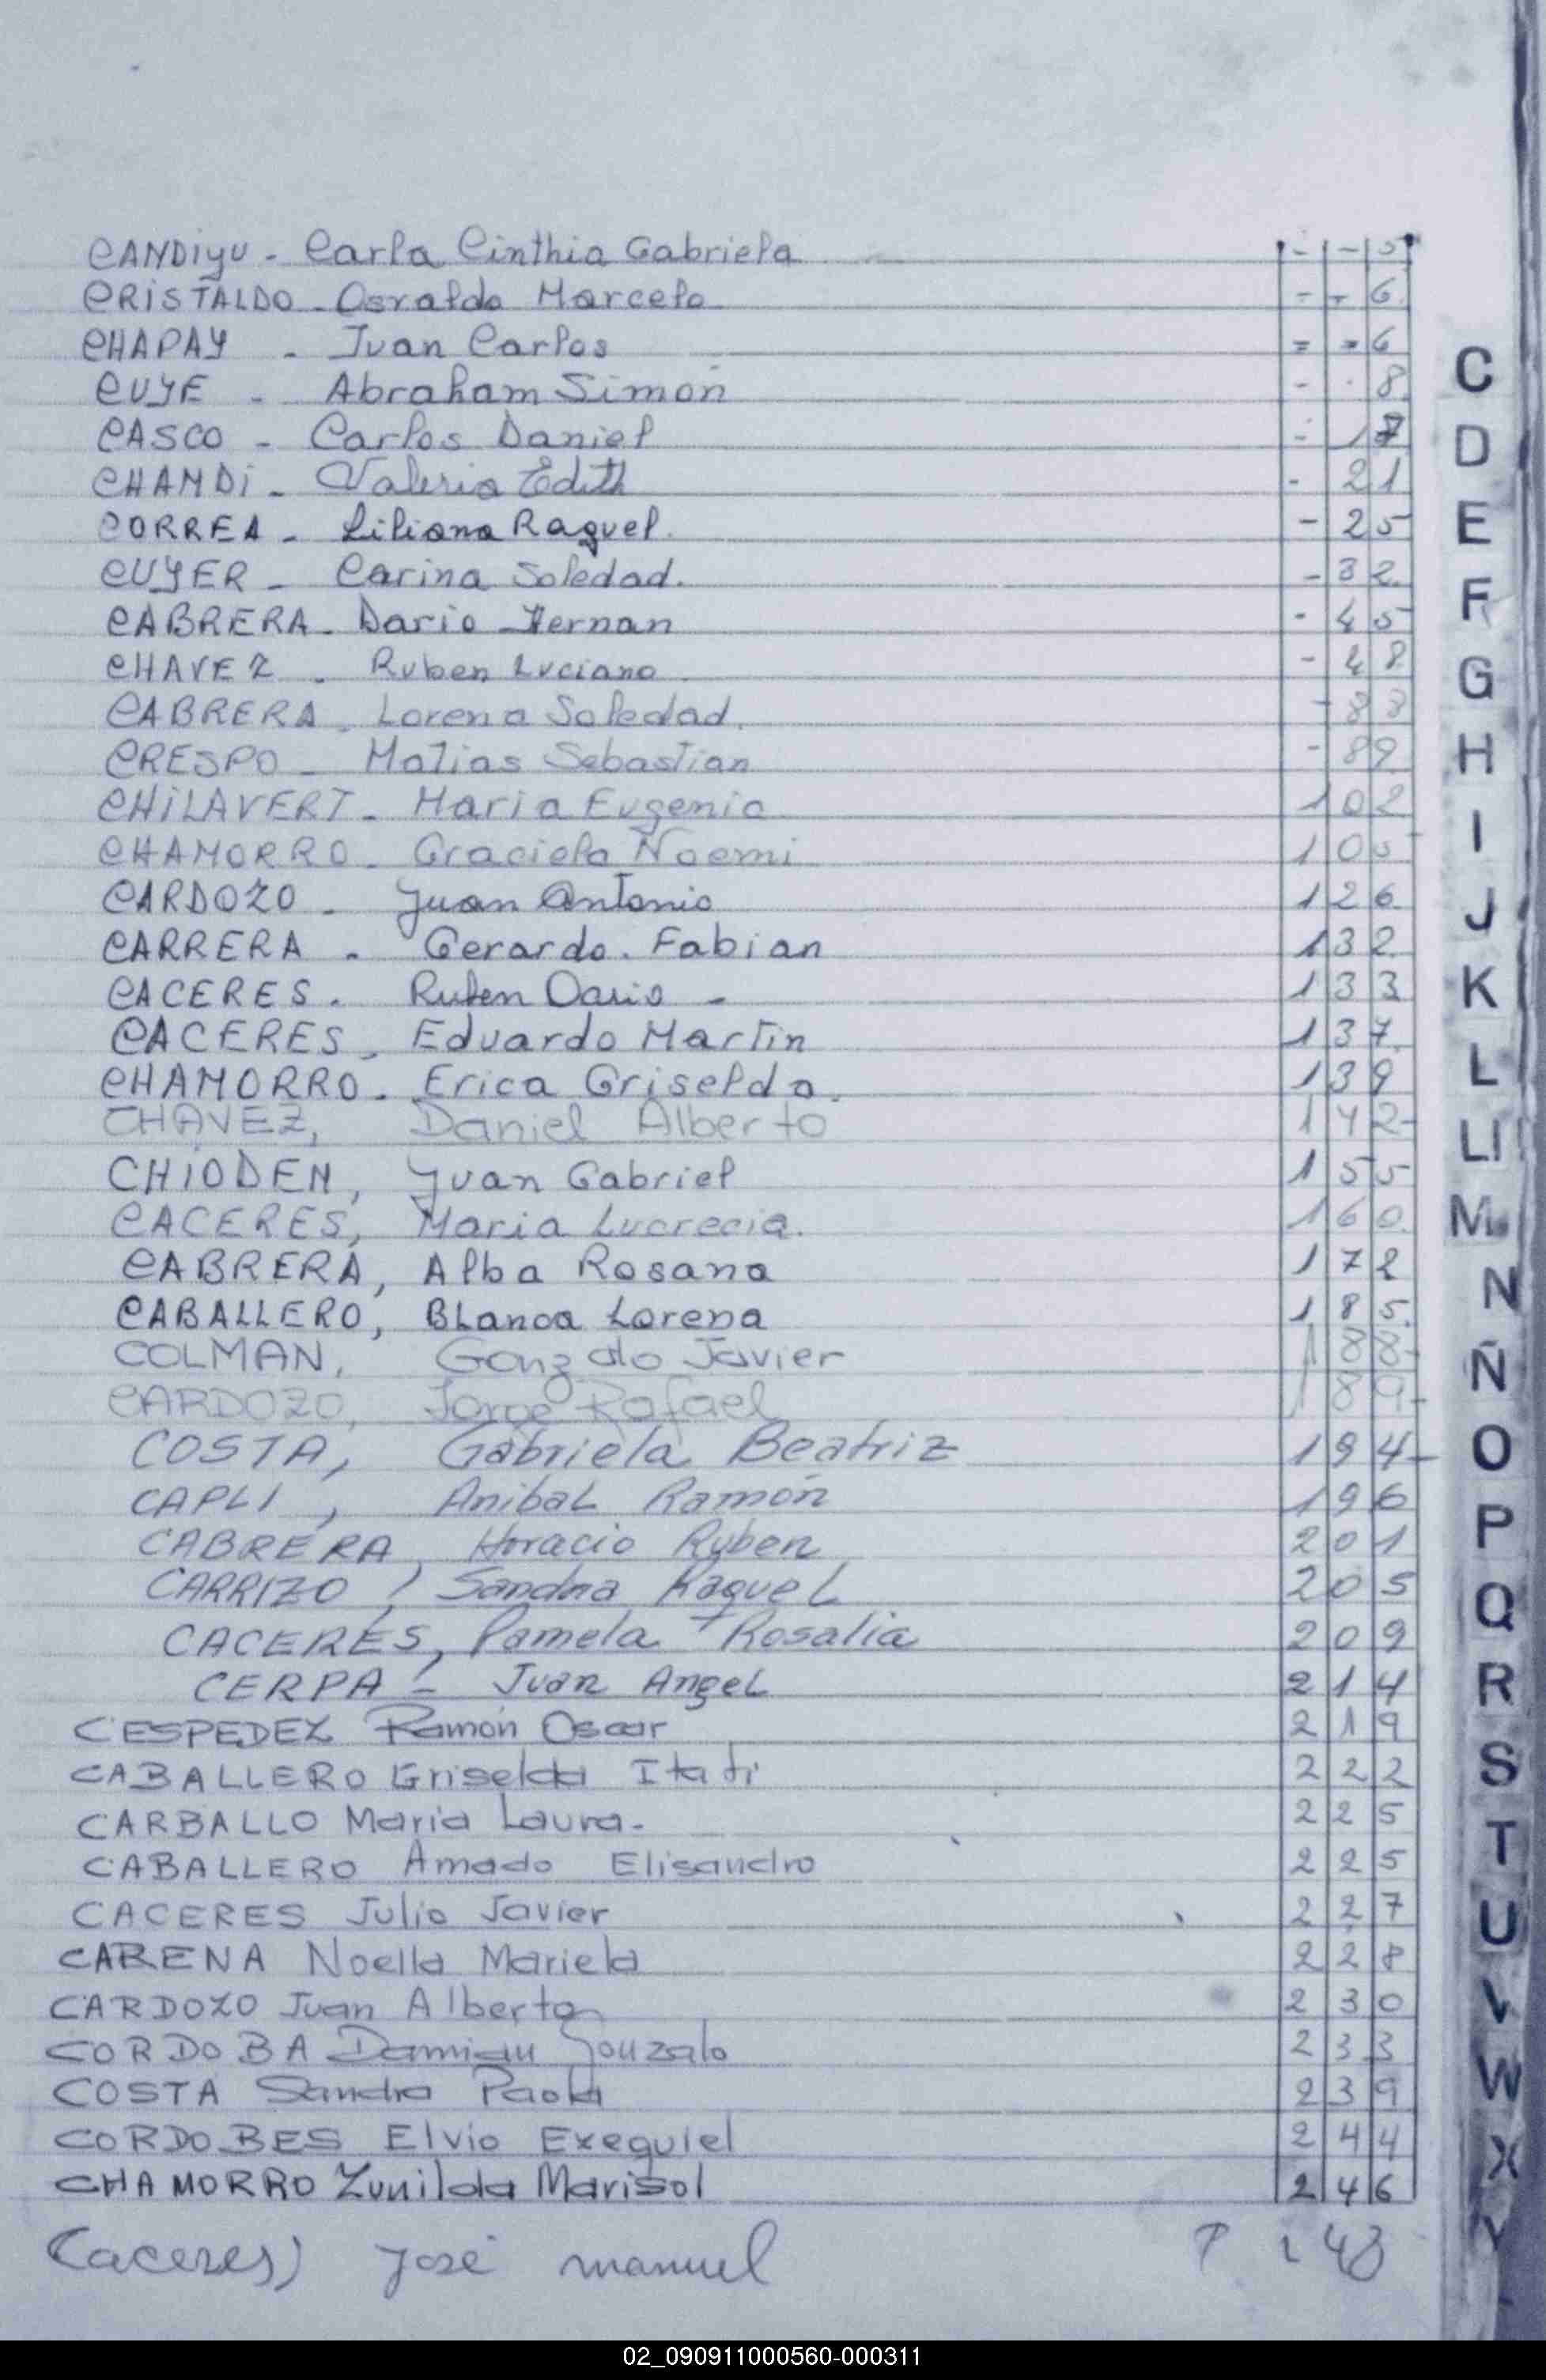 CANDIYU - Carla Cinthia Gabriela - - 5
CRISTALDO - Osvaldo Marcelo - - 6
CHAPAY - Juan Carlos = = 6
CUYE - Abraham Simon - - 8
CASCO - Carlos Daniel - 17
CHAMDi - Valeria Edith - 21
CORREA - Liliana Raquel. - 25
CUYER - Carina Soledad. - 32
CABRERA - Dario Hernan - 45
CHAVEZ - Ruben Luciano - 48
CABRERA - Lorena Soledad. - 83
CRESPO - Matias Sebastian - 89
CHiLAVERT - Maria Eugenia 102
CHAMORRO - Graciela Noemi 105
CARDOZO - Juan Antonio 126
CARRERA - Gerardo. Fabian 132
CACERES. Ruben Dario - 133
CACERES - Eduardo Martin 137
CHAMORRO - Erica Griselda. 139
CHAVEZ, Daniel Alberto 142-
CHIODEN, Juan Gabriel 155
CACERES, Maria Lucrecia. 160
CABRERA, Alba Rosana 172
CABALLERO, BLanca Lorena 185
COLMAN, Gonzalo Javier 188-
CARDOZO, Jorge Rafael 189-
COSTA, Gabriela Beatriz 194-
CAPLI, Anibal Ramón 196
CABRERA, Horacio Ruben 201
CARRIZO, Sandra Raquel 205
CACERES, Pamela Rosalia 209
CERPA - Juan Angel 214
CESPEDEZ Ramón Oscar 219
CABALLERO Griselda Itati 222
CARBALLO Maria Laura- 225
CABALLERO Amado Elisandro 225
CACERES Julio Javier 227
CARENA Noella Mariela 228
CARDOZO Juan Alberto 230
CORDOBA Damian Gonzalo 233
COSTA Sandra Paola 239
CORDOBES Elvio Exequiel 244
CHAMORRO Zunilda Marisol 246
Caceres) José manuel 248
C
D
E
F
G
H
I
J
K
L
LI
M
N
Ñ
O
P
Q
R
S
T
U
V
W
X
Y
02_090911000560-000311